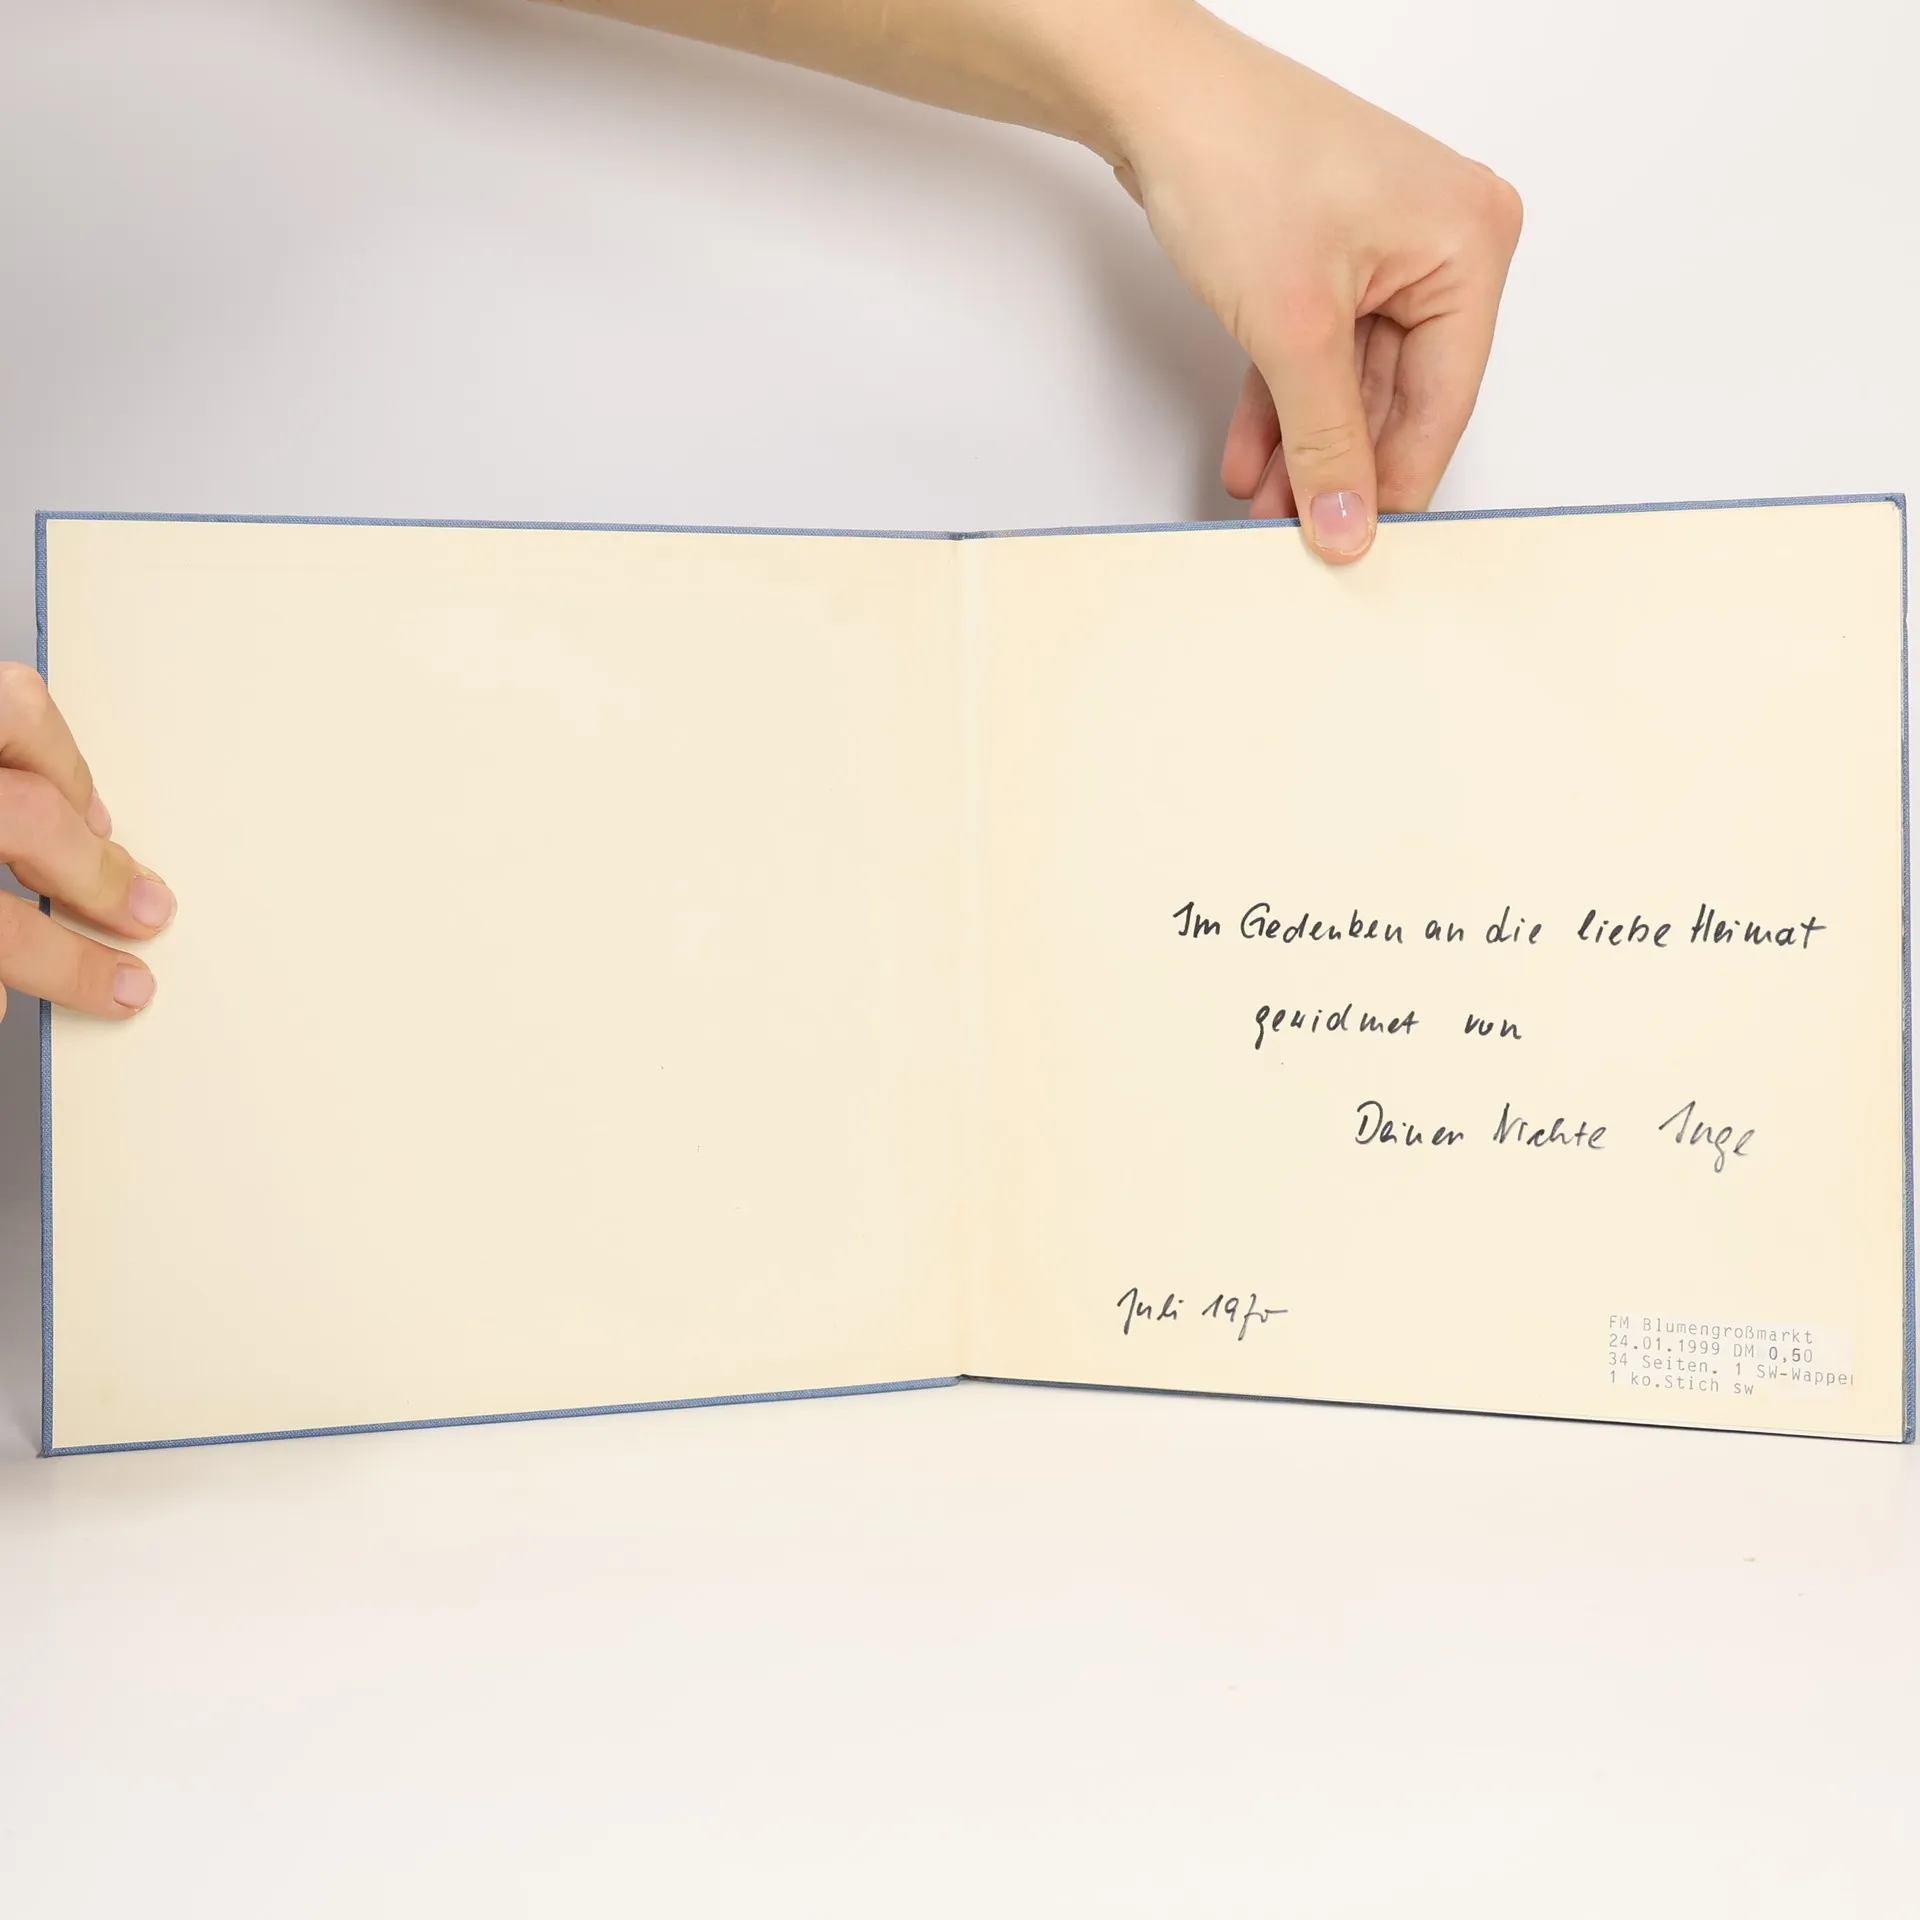 Im Gedenken an die liebe Heimat
gewidmet von
Deiner Nichte Inge
Juli 1970
FM Blumengroßmarkt
24.01.1999 DM 0,50
34 Seiten. 1 SW-Wappen
1 ko.Stich sw